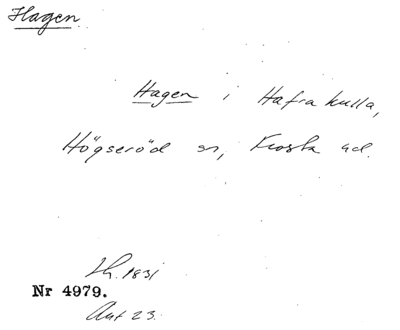 Hagen
Hagen i Hafrakulla,
Högseröd sn, Frosta hd.
Lh. 1831
Nr 4979.
Ant 23.